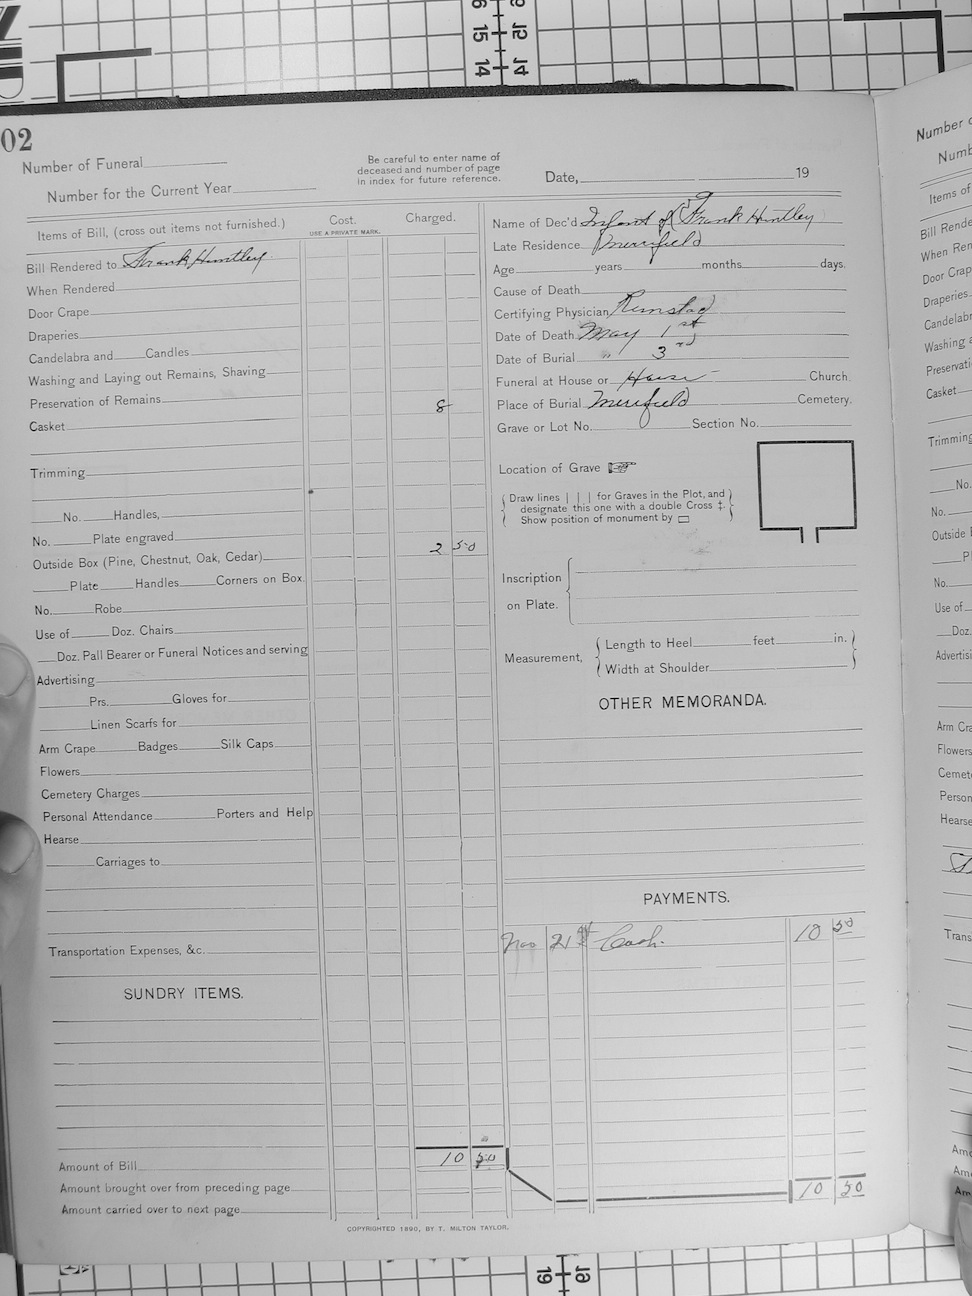 02
Number of Funeral
Number for the Current Year
Be careful to enter name of
deceased and number of page
in index for future reference.
Date, 19
Items of Bill, (cross out items not furnished.)
Cost.
USE A PRIVATE MARK.
Charged.
Bill Rendered to Frank Huntley
When Rendered
Door Crape
Draperies
Candelabra and Candles
Washing and Laying out Remains, Shaving
Preservation of Remains
Casket 8
Trimming
No. Handles,
No. Plate engraved
Outside Box (Pine, Chestnut, Oak, Cedar) 2 50
Plate Handles Corners on Box.
No. Robe
Use of Doz. Chairs
Doz. Pall Bearer or Funeral Notices and serving
Advertising
Prs. Gloves for
Linen Scarfs for
Arm Crape Badges Silk Caps
Flowers
Cemetery Charges
Personal Attendance Porters and Help
Hearse
Carriages to
Transportation Expenses, &c.
SUNDRY ITEMS.
Amount of Bill 10 50
Amount brought over from preceding page
Amount carried over to next page
Name of Dec'd Infant of Frank Huntley
Late Residence Merrifield
Age years months days.
Cause of Death
Certifying Physician Remstad
Date of Death May 1st
Date of Burial " 3rd
Funeral at House or House Church
Place of Burial Merrifield Cemetery.
Grave or Lot No. Section No.
Location of Grave
Draw lines | | | for Graves in the Plot, and
designate this one with a double Cross ‡.
Show position of monument by ▭
Inscription
on Plate.
Measurement,
Length to Heel feet in.
Width at Shoulder
OTHER MEMORANDA.
PAYMENTS.
Nov 21st Cash. 10 50
10 50
COPYRIGHTED 1890, BY T. MILTON TAYLOR.
Number
Numb
Items of
Bill Rende
When Ren
Door Crap
Draperies
Candelabr
Washing a
Preservati
Casket
Trimming
No.
No.
Outside
Pl
No.
Use of
Doz.
Advertisi
Arm Cra
Flowers
Cemete
Person
Hearse
Trans
Amo
Am
Am
15
14
19